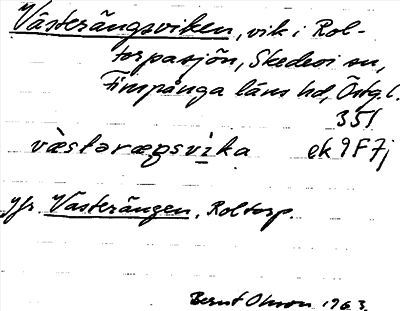 Västerängsviken, vik i Rol-
torpasjön, Skedevi sn,
Finspånga läns hd, Östg. l.
351
vàstəræŋsvika ek 9F7j
Jfr Västerängen, Roltorp.
Bernt Olsson 1963.